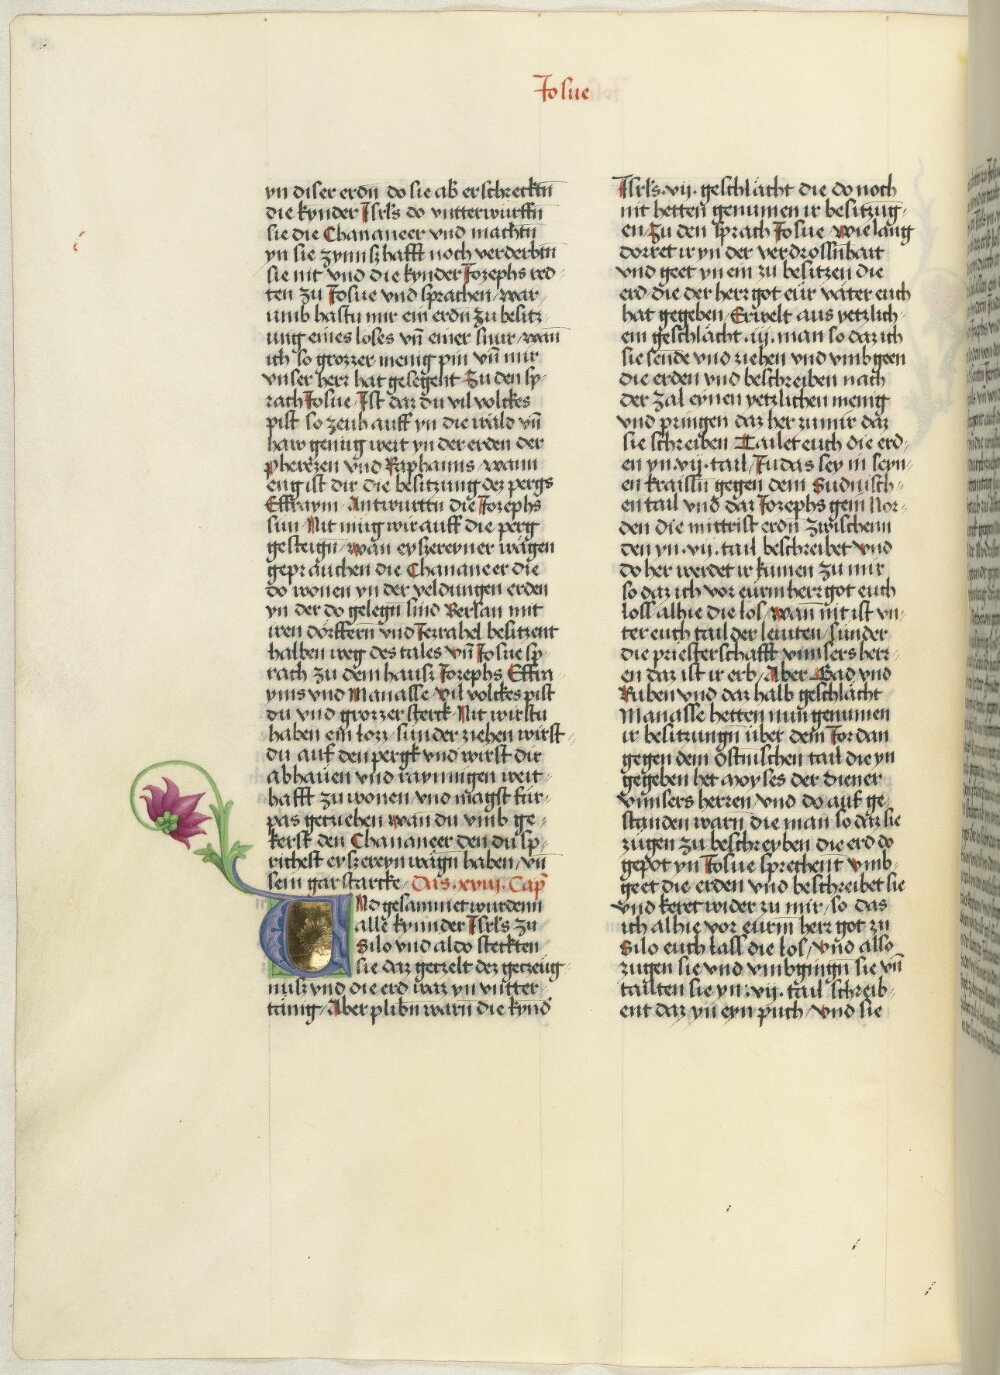 Josue
yn diser erdn do sie ab' erschrecktn
die kynder Isrl's do vntterwurffn
sie die Chananeer vnd machtn
yn sie zynnszhafft noch verderbtn
sie nit vnd die kynder Jozephs red-
ten zu Josue vnd sprachen war-
umb hastu mir ein erdn zu besitz-
ung eines loses vn̄ einer snur wan̄
ich so grozzer menig pin vn̄ mir
vnser herr hat gesegent Zu den sp-
rach Josue Ist daz du vil volckes
pist so zeuh auff yn die wäld vn̄
haw genug weit yn der erden der
pherezen vnd Raphaims wann
eng ist dir die besitzung dez pergs
Effraym Antwurttn die Jozephs
sun Nit müg wir auff die perg
gesteign wan eyszereyner wägen
geprauchen die Chananeer die
do wonen yn der veldungen erden
yn der do gelegn sind Bersan mit
iren dörffern vnd Jezrahel besitzent
halben weg des tales vn̄ Josue sp-
rach zu dem hausz Jozephs Effra-
yms vnd Manasse vil volckes pist
du vnd grozzer sterck Nit wirstu
haben ein lozz sunder ziehen wirst
du auf den pergk vnd wirst dir
abhauen vnd raynnigen weit-
hafft zu wonen vnd magst für-
pas geziehen wan du vmb ge-
kerst den Chananeer den du sp-
richest eyszereyn wägn haben vn̄
sein gar starcke Das .xviij. Cap̄
Vnd gesammet wurdenn
alle kynnder Isrl's zu
Silo vnd aldo steckten
sie daz gezelt dez gezeug-
nusz vnd die erd waz yn vntter-
tänig Aber plibn warn die kynd'
Isrl's .vij. geschlächt die do noch
nit hetten genumen ir besitzug-
en Zu den sprach Josue wie lang
dorret ir yn der verdrossnhait
vnd geet yn ein zu besitzen die
erd die der herr got eür väter euch
hat gegeben Erwelt aus yetzlich-
em geschlächt .iij. man so daz ich
sie sende vnd ziehen vnd vmb geen
die erden vnd beschreiben nach
der zal eynen yetzlichen menig
vnd pringen daz her zu mir daz
sie schreiben Tailet euch die erd-
en yn .vij. tail Judas sey in seyn-
en kraissn gegen dem Sudnisch-
en tail vnd daz Jozephs gein Nor-
den die mittrist erdn zwischenn
den yn .vij. tail beschreibet vnd
do her werdet ir kumen zu mir
so daz ich vor eürm herr got euch
loss alhie die los wan nit ist vn-
ter euch tail der leuiten sunder
die priesterschafft vnnsers herr-
en daz ist ir erb Aber Gad vnd
Ruben vnd daz halb geschlächt
Manasse hetten nun genumen
ir besitzungn über dem Jordan
gegen dem östnischen tail die yn
gegeben het Moyses der diener
vnnsers herren vnd do auf ge-
standen warn die man so daz sie
zügen zu beschreyben die erd do
gepot yn Josue sprechent vmb-
geet die erden vnd beschreibet sie
vnd keret wider zu mir so das
ich alhie vor eürm herr got zu
Silo euch lass die los vnd also
zugen sie vnd vmbgingn sie vn̄
tailten sie yn .vij. tail schreib-
ent daz yn eyn puch vnd sie